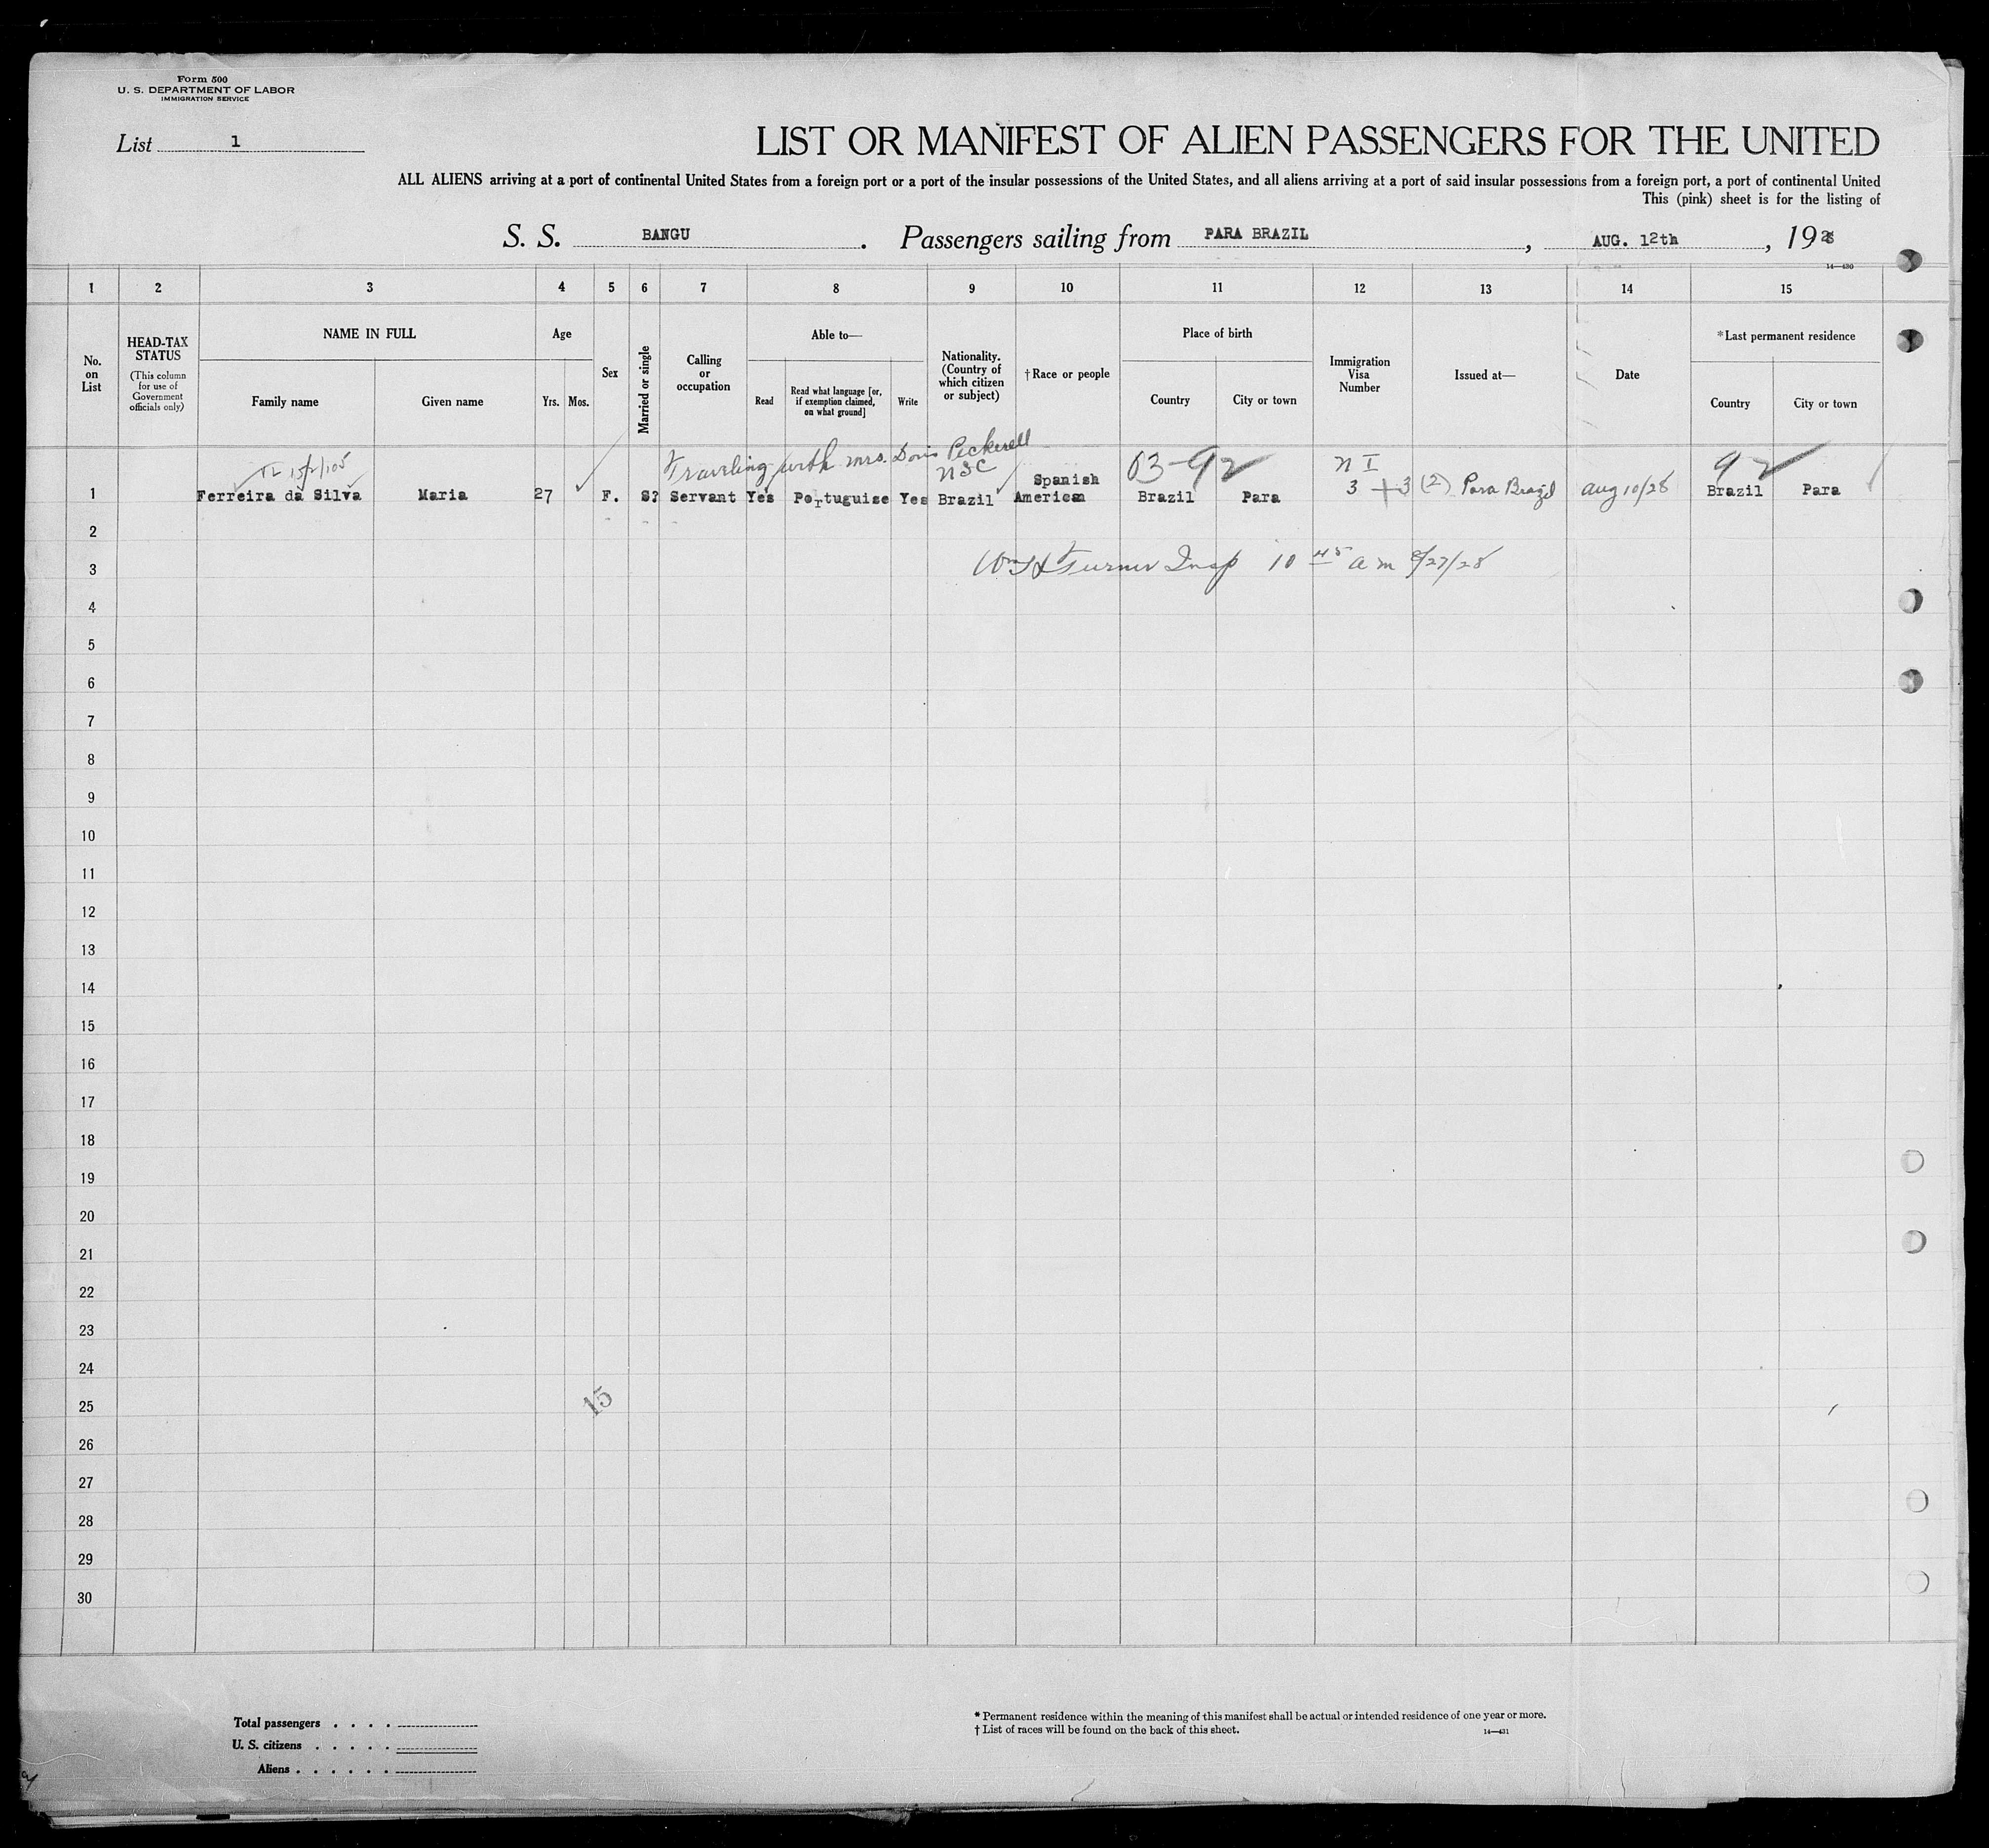 Form 500
U. S. DEPARTMENT OF LABOR
IMMIGRATION SERVICE
List 1
LIST OR MANIFEST OF ALIEN PASSENGERS FOR THE UNITED
ALL ALIENS arriving at a port of continental United States from a foreign port or a port of the insular possessions of the United States, and all aliens arriving at a port of said insular possessions from a foreign port, a port of continental United
This (pink) sheet is for the listing of
S. S. BANGU. Passengers sailing from PARA BRAZIL, AUG. 12th, 1928
14—430
1 2 3 4 5 6 7 8 9 10 11 12 13 14 15
No. on List
HEAD-TAX STATUS
(This column for use of Government officials only)
NAME IN FULL
Family name
Given name
Age
Yrs. Mos.
Sex
Married or single
Calling or occupation
Able to—
Read
Read what language [or, if exemption claimed, on what ground]
Write
Nationality. (Country of which citizen or subject)
†Race or people
Place of birth
Country
City or town
Immigration Visa Number
Issued at—
Date
*Last permanent residence
Country
City or town
Traveling with Mrs. Doris Pickerell
NSC
03-92
N I
92
1 Ferreira da Silva Maria 27 F. S? Servant Yes Portuguise Yes Brazil Spanish American Brazil Para 3 + 3 (2) Para Brazil Aug 10/28 Brazil Para
2
3 Wm H Turner Insp 10 45 am 8/27/28
4
5
6
7
8
9
10
11
12
13
14
15
16
17
18
19
20
21
22
23
24
25
15
26
27
28
29
30
Total passengers . . . .
U. S. citizens . . . . .
Aliens . . . . . .
* Permanent residence within the meaning of this manifest shall be actual or intended residence of one year or more.
† List of races will be found on the back of this sheet.
14—431